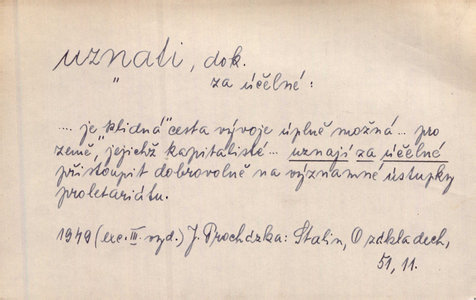 uznati, dok.
" za účelné:
.... je „klidná" cesta vývoje úplně možná... pro
země, jejichž kapitalisté... uznají za účelné
přistoupit dobrovolně na významné ústupky
proletariátu.
1949 (exc. III. vyd.) J. Procházka: Stalin, O zákldech,
51, 11.